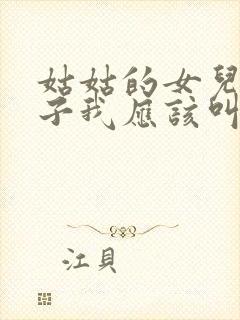 姑姑的女兒
子我應該叫
江貝